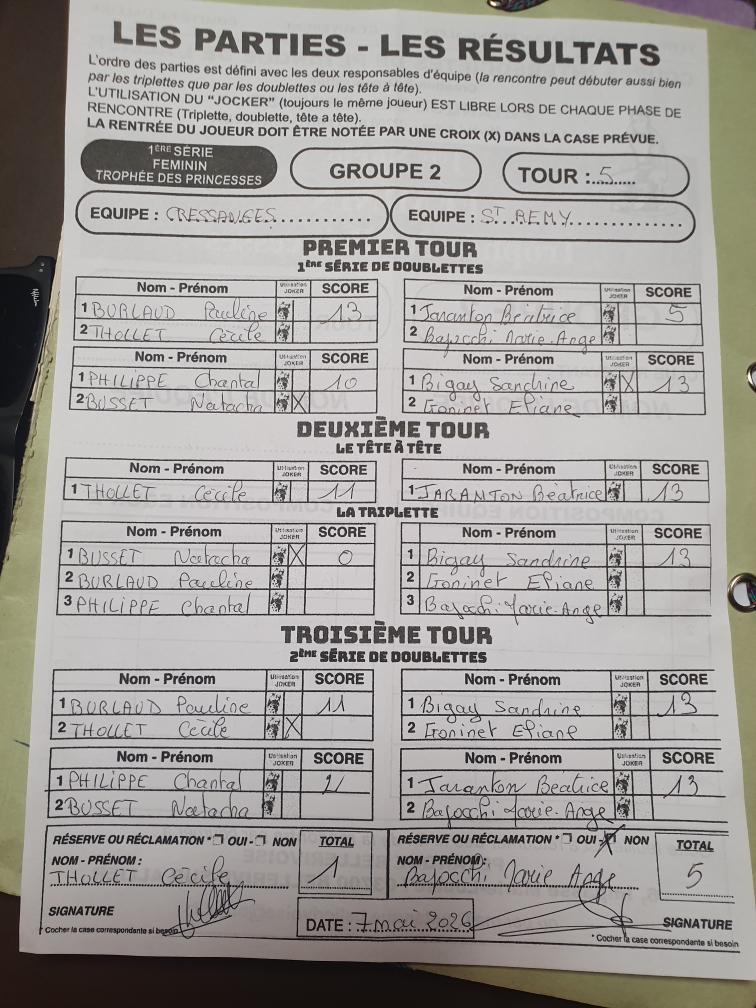 LES PARTIES - LES RÉSULTATS
L'ordre des parties est défini avec les deux responsables d'équipe (la rencontre peut débuter aussi bien
par les triplettes que par les doublettes ou les tête à tête).
L'UTILISATION DU "JOCKER" (toujours le même joueur) EST LIBRE LORS DE CHAQUE PHASE DE
RENCONTRE (Triplette, doublette, tête a tête).
LA RENTRÉE DU JOUEUR DOIT ÊTRE NOTÉE PAR UNE CROIX (X) DANS LA CASE PRÉVUE.
1ÈRE SÉRIE
FEMININ
TROPHÉE DES PRINCESSES
GROUPE 2
TOUR : 5
EQUIPE : CRESSANGES
EQUIPE : ST REMY
PREMIER TOUR
1ÈRE SÉRIE DE DOUBLETTES
Nom - Prénom Utilisation JOKER SCORE Nom - Prénom Utilisation JOKER SCORE
1 BURLAUD Pauline 13 1 Jaranton Béatrice 5
2 THOLLET Cécile 2 Bajocchi Marie-Ange
Nom - Prénom Utilisation JOKER SCORE Nom - Prénom Utilisation JOKER SCORE
1 PHILIPPE Chantal 10 1 Bigay Sandrine X 13
2 BUSSET Natacha X 2 Goninet Eliane
DEUXIÈME TOUR
LE TÊTE À TÊTE
Nom - Prénom Utilisation JOKER SCORE Nom - Prénom Utilisation JOKER SCORE
1 THOLLET Cécile 11 1 JARANTON Béatrice 13
LA TRIPLETTE
Nom - Prénom Utilisation JOKER SCORE Nom - Prénom Utilisation JOKER SCORE
1 BUSSET Natacha X 0 1 Bigay Sandrine 13
2 BURLAUD Pauline 2 Goninet Eliane
3 PHILIPPE Chantal 3 Bajocchi Marie-Ange
TROISIÈME TOUR
2ÈME SÉRIE DE DOUBLETTES
Nom - Prénom Utilisation JOKER SCORE Nom - Prénom Utilisation JOKER SCORE
1 BURLAUD Pauline 11 1 Bigay Sandrine 13
2 THOLLET Cécile X 2 Goninet Eliane
Nom - Prénom Utilisation JOKER SCORE Nom - Prénom Utilisation JOKER SCORE
1 PHILIPPE Chantal 1 Jaranton Béatrice 13
2 BUSSET Natacha 2 Bajocchi Marie-Ange
RÉSERVE OU RÉCLAMATION * OUI - NON TOTAL RÉSERVE OU RÉCLAMATION * OUI - X NON TOTAL
NOM - PRÉNOM : NOM - PRÉNOM :
THOLLET Cécile 1 Bajocchi Marie Ange 5
SIGNATURE DATE : 7 mai 2026 SIGNATURE
* Cocher la case correspondante si besoin * Cocher la case correspondante si besoin